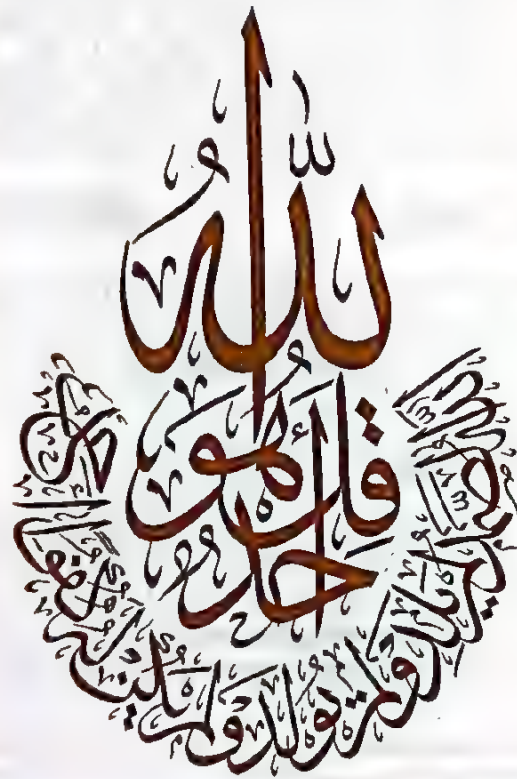 قُلْ هُوَ
اللَّهُ
أَحَدٌ
اللَّهُ الصَّمَدُ لَمْ يَلِدْ وَلَمْ يُولَدْ وَلَمْ يَكُنْ لَهُ كُفُوًا أَحَدٌ